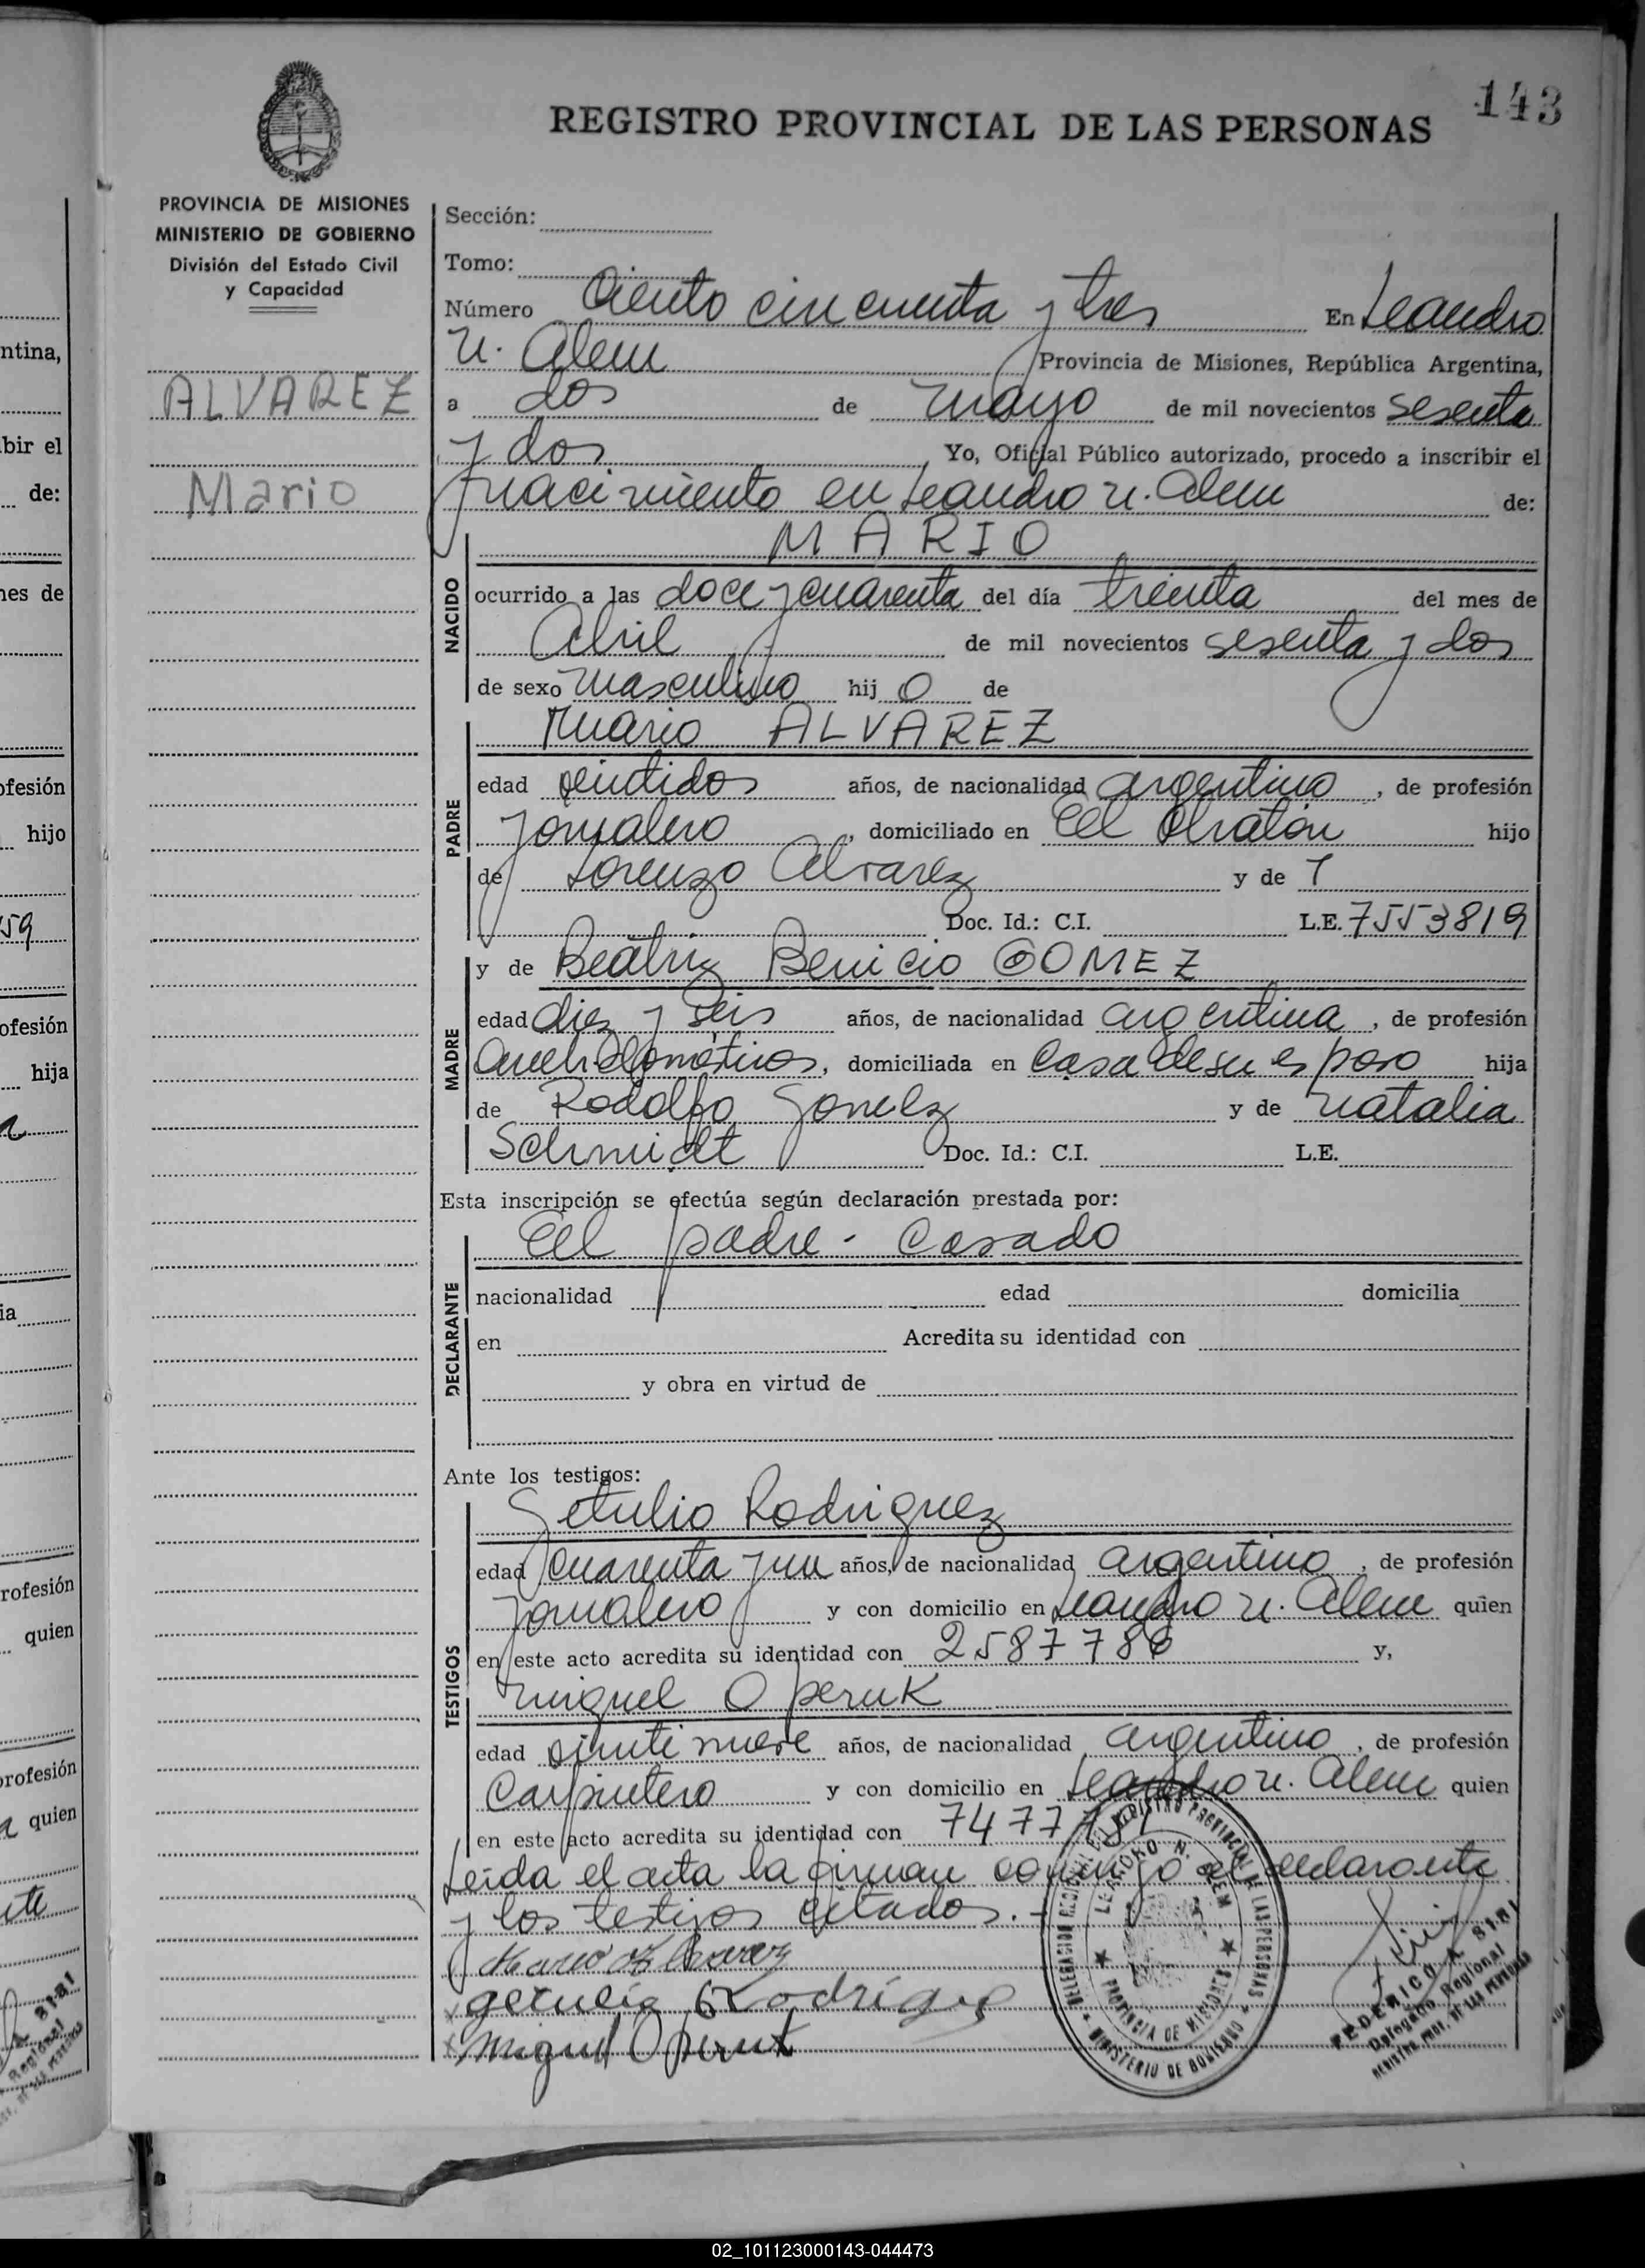 143
REGISTRO PROVINCIAL DE LAS PERSONAS
PROVINCIA DE MISIONES
MINISTERIO DE GOBIERNO
División del Estado Civil
y Capacidad
ALVAREZ
Mario
Sección:
Tomo:
Número Ciento cincuenta y tres En Leandro
N. Alem Provincia de Misiones, República Argentina,
a dos de mayo de mil novecientos sesenta
y dos Yo, Oficial Público autorizado, procedo a inscribir el
nacimiento en Leandro N. Alem de:
MARIO
NACIDO
ocurrido a las doce y cuarenta del día treinta del mes de
Abril de mil novecientos sesenta y dos
de sexo masculino hij o de
Mario ALVAREZ
PADRE
edad veintidos años, de nacionalidad argentino, de profesión
Jornalero, domiciliado en El Chatón hijo
de Lorenzo Alvarez y de
Doc. Id.: C.I. L.E. 7553819
MADRE
y de Beatriz Benicio GOMEZ
edad diez y seis años, de nacionalidad argentina, de profesión
domiciliada en Casa de su esposo hija
de Rodolfo Gomez y de Natalia
Schmidt Doc. Id.: C.I. L.E.
Esta inscripción se efectúa según declaración prestada por:
El padre - Casado
DECLARANTE
nacionalidad edad domicilia
en Acredita su identidad con
y obra en virtud de
Ante los testigos:
TESTIGOS
Getulio Rodriguez
edad cuarenta y un años, de nacionalidad argentino, de profesión
Jornalero y con domicilio en Leandro N. Alem quien
en este acto acredita su identidad con 2587786 y,
Miguel Operuk
edad veinti nueve años, de nacionalidad argentino, de profesión
Carpintero y con domicilio en Leandro N. Alem quien
en este acto acredita su identidad con 7477781
Leida el acta la firman conmigo el declarante
y los testigos citados.-
Mario Alvarez
getulio Rodrigue
Miguel Operuk
DELEGACION REGISTRO PROVINCIAL DE LAS PERSONAS
LEANDRO N. ALEM
PROVINCIA DE MISIONES
MINISTERIO DE GOBIERNO
FEDERICO A. BIBI
Delegado Regional
REGISTRO PROV. DE LAS PERSONAS
02_101123000143-044473